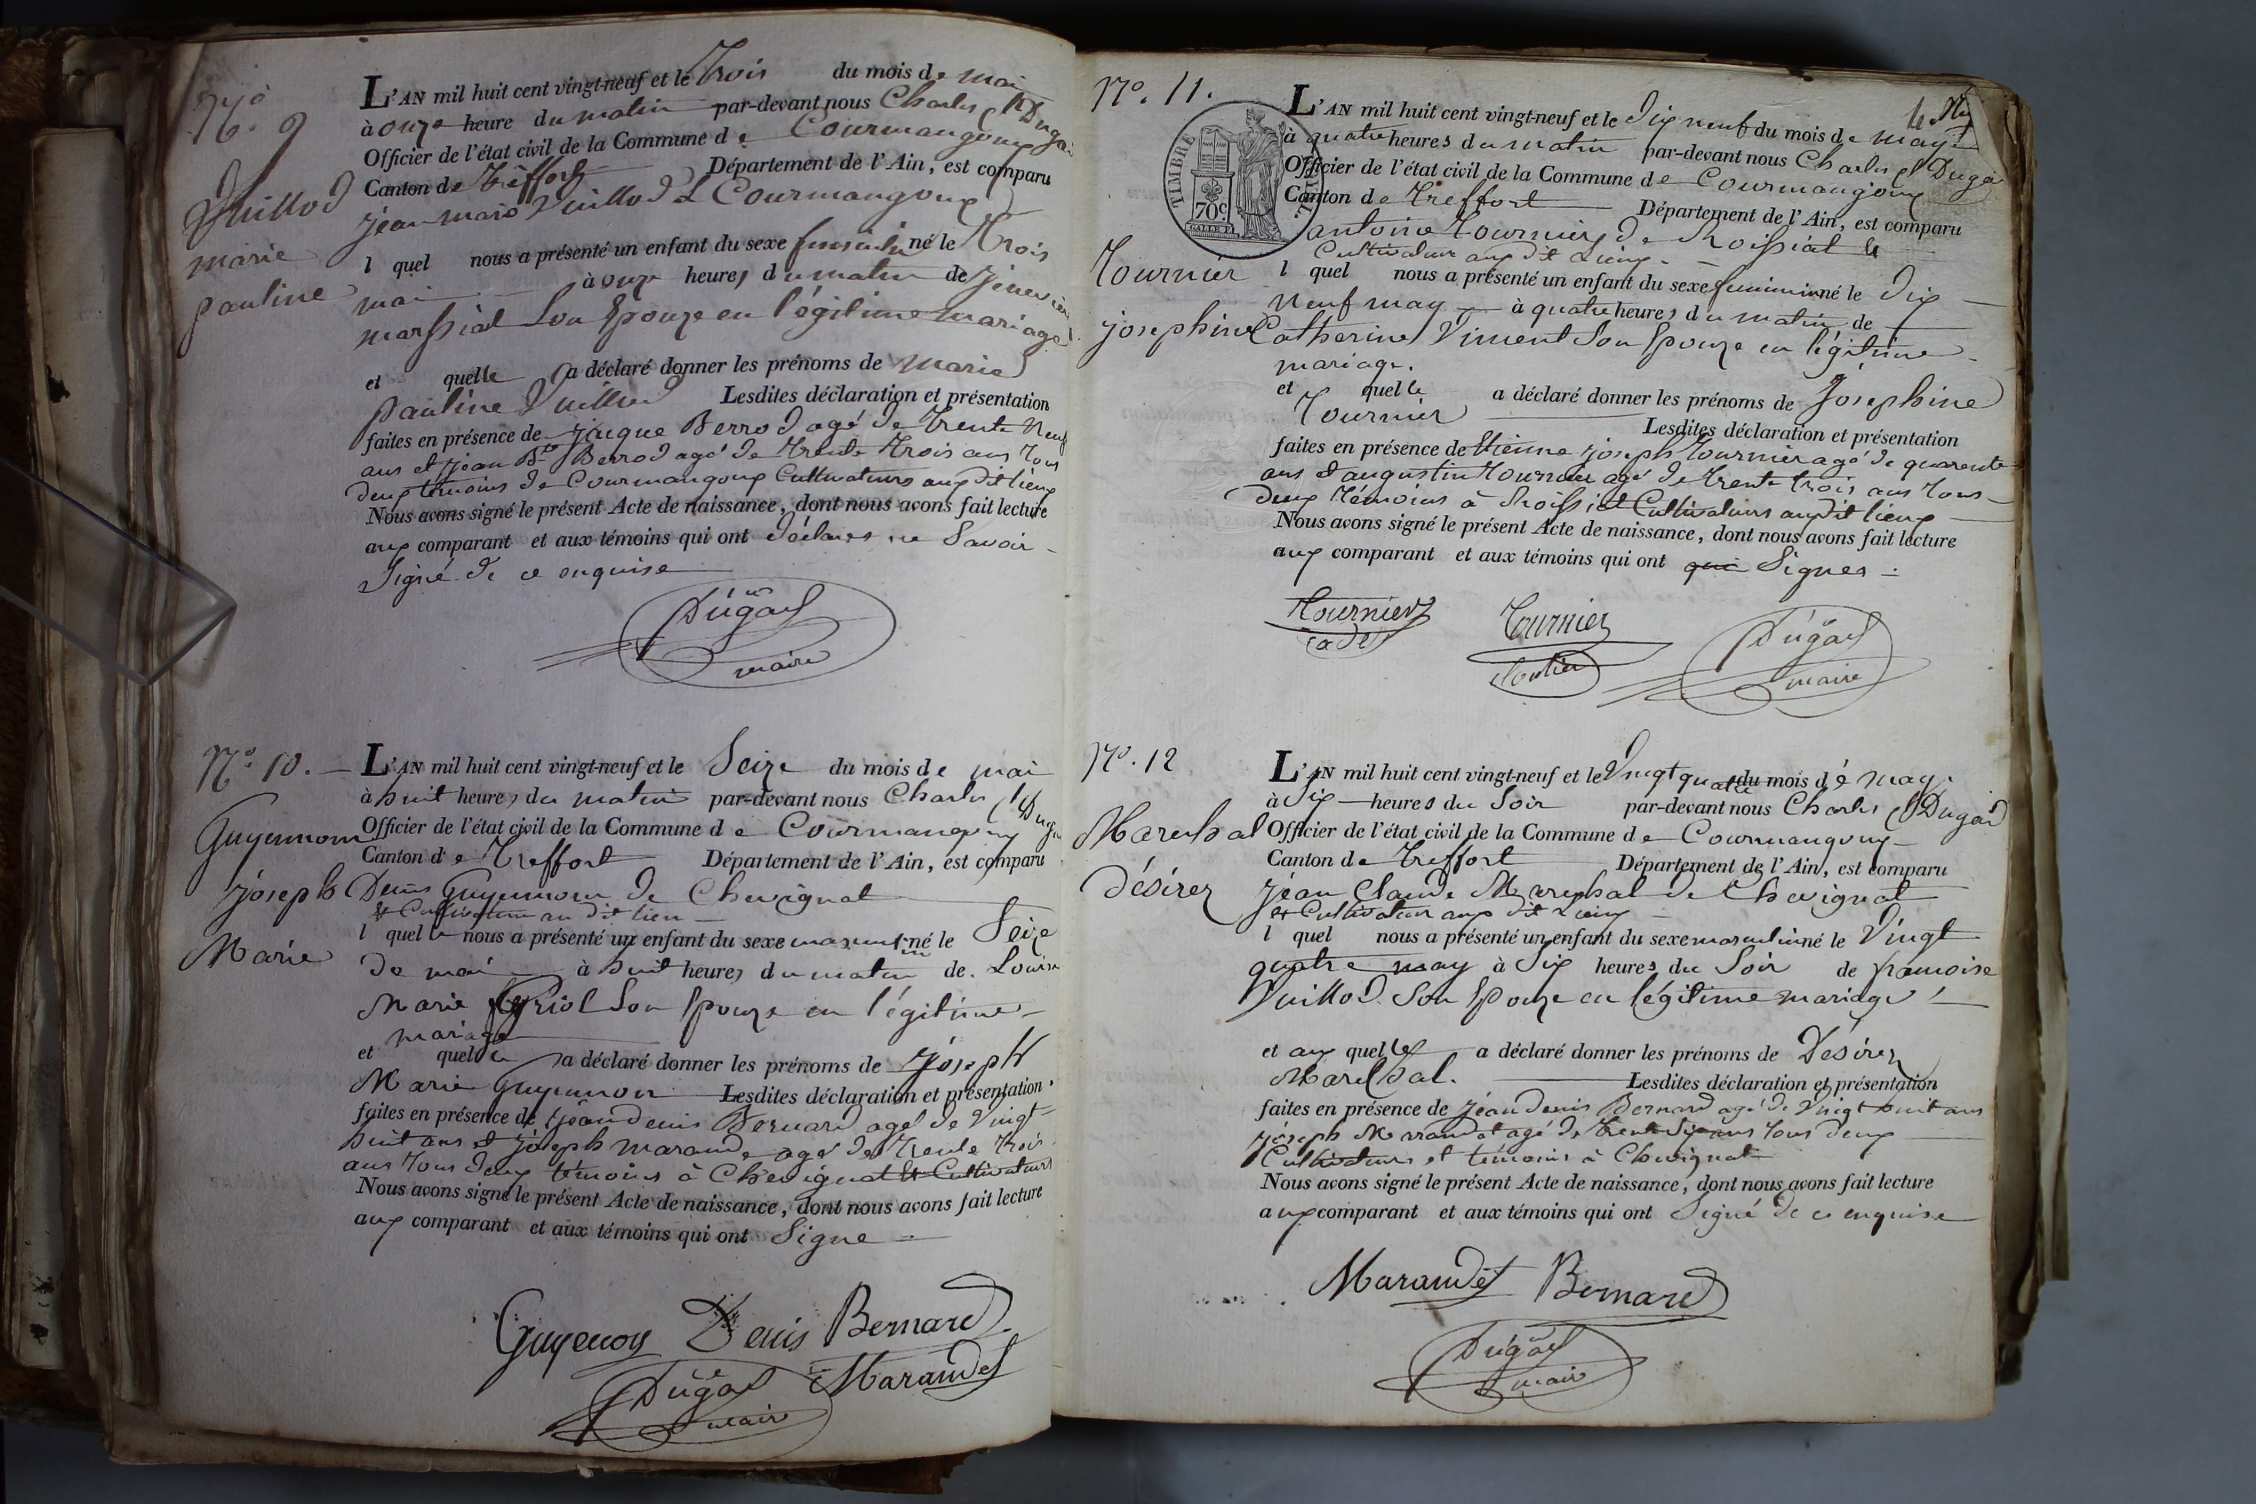 N.º 9
Vuillod
marie
pauline
L'AN mil huit cent vingt-neuf et le Trois du mois de mai
à onze heure du matin par-devant nous Charles Dugad
Officier de l'état civil de la Commune de Courmangoux
Canton de Treffort Département de l'Ain, est comparu
jean marie Vuillod Courmangoux
l quel nous a présenté un enfant du sexe feminin né le Trois
mai à onze heures du matin de
Son Epouze en l'égitime mariage
et quelle a déclaré donner les prénoms de marie
pauline Vuillod Lesdites déclaration et présentation
faites en présence de jacque Berrod agé de Trente neuf
ans et jean Bte Berrod agé de Trente Trois ans Tous
deux témoins de Courmangoux Cultivateurs aux dit lieux
Nous avons signé le présent Acte de naissance, dont nous avons fait lecture
aux comparant et aux témoins qui ont déclaré ne Savoir
Signé de ce enquise
Dugad
maire
N.º 10.
Guyennon
joseph
Marie
L'AN mil huit cent vingt-neuf et le Seize du mois de mai
à huit heures du matin par-devant nous Charles Dugad
Officier de l'état civil de la Commune de Courmangoux
Canton de Treffort Département de l'Ain, est comparu
Denis Guyennon de Chevignat
et Cultivateur au dit lieu
l quel le nous a présenté un enfant du sexe masculin né le Seize
de mai à huit heures du matin de Louise
Marie Son Epouze en l'égitime
mariage
et quelle a déclaré donner les prénoms de joseph
Marie Guyennon Lesdites déclaration et présentation
faites en présence de jean denis Bernard agé de Vingt
huit ans et joseph marande agé de Trente Trois
ans Tous deux témoins à Chevignat et Cultivateurs
Nous avons signé le présent Acte de naissance, dont nous avons fait lecture
aux comparant et aux témoins qui ont Signe
Guyenon Denis Bernard
Dugad Marandet
maire
N.º 11.
TIMBRE
70c
Tournier
josephine
L'AN mil huit cent vingt-neuf et le Dix neuf du mois de may
à quatre heures du matin par-devant nous Charles Dugad
Officier de l'état civil de la Commune de Courmangoux
Canton de Treffort Département de l'Ain, est comparu
antoine Tournier de Roissiat
Cultivateur aux dit Lieux
l quel nous a présenté un enfant du sexe feminin né le dix
neuf may à quatre heures du matin de
Catherine Viment Son Epouze en légitime
mariage.
et quelle a déclaré donner les prénoms de Joséphine
Tournier Lesdites déclaration et présentation
faites en présence de Etienne joseph Tournier agé de quarente
ans et augustin Tournier agé de Trente trois ans Tous
deux Témoins à Roissiat Cultivateurs audit lieux
Nous avons signé le présent Acte de naissance, dont nous avons fait lecture
aux comparant et aux témoins qui ont qui Signes
Tournier Tournier Dugad
maire
N.º 12
Marechal
désirez
L'AN mil huit cent vingt-neuf et le Vingt quatre du mois dé may
à Six heures du Soir par-devant nous Charles Dugad
Officier de l'état civil de la Commune de Courmangoux
Canton de Treffort Département de l'Ain, est comparu
jéan Claude Marechal de Chevignat
et Cultivateur aux dit Lieux
l quel nous a présenté un enfant du sexe masculin né le Vingt
quatre may à Six heures du Soir de francoise
Vuillod. Son Epouze en légitime mariage
et aux quelle a déclaré donner les prénoms de Désirez
Marechal. Lesdites déclaration et présentation
faites en présence de jéan denis Bernard agé de Vingt huit ans
joseph Marandet agé de trente Six ans Tous deux
Cultivateurs et témoins à Chevignat
Nous avons signé le présent Acte de naissance, dont nous avons fait lecture
aux comparant et aux témoins qui ont Signé de ce enquise
Marandet Bernard
Dugad
maire